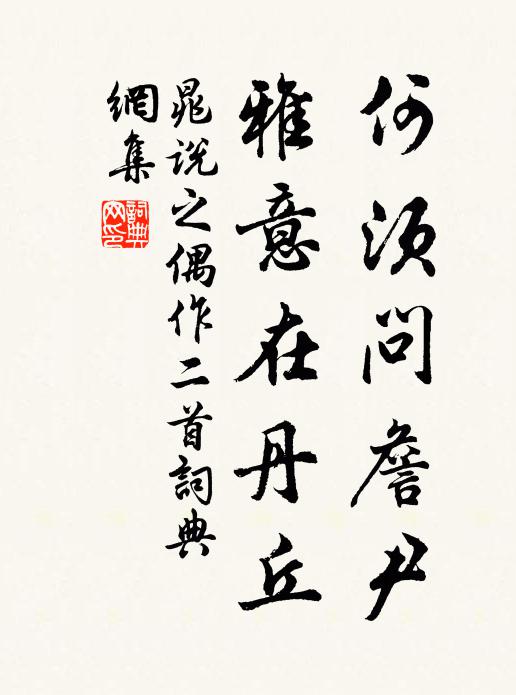 何須問詹尹
雅意在丹丘
晁說之偶作二首詞典
網集
詞典
网印